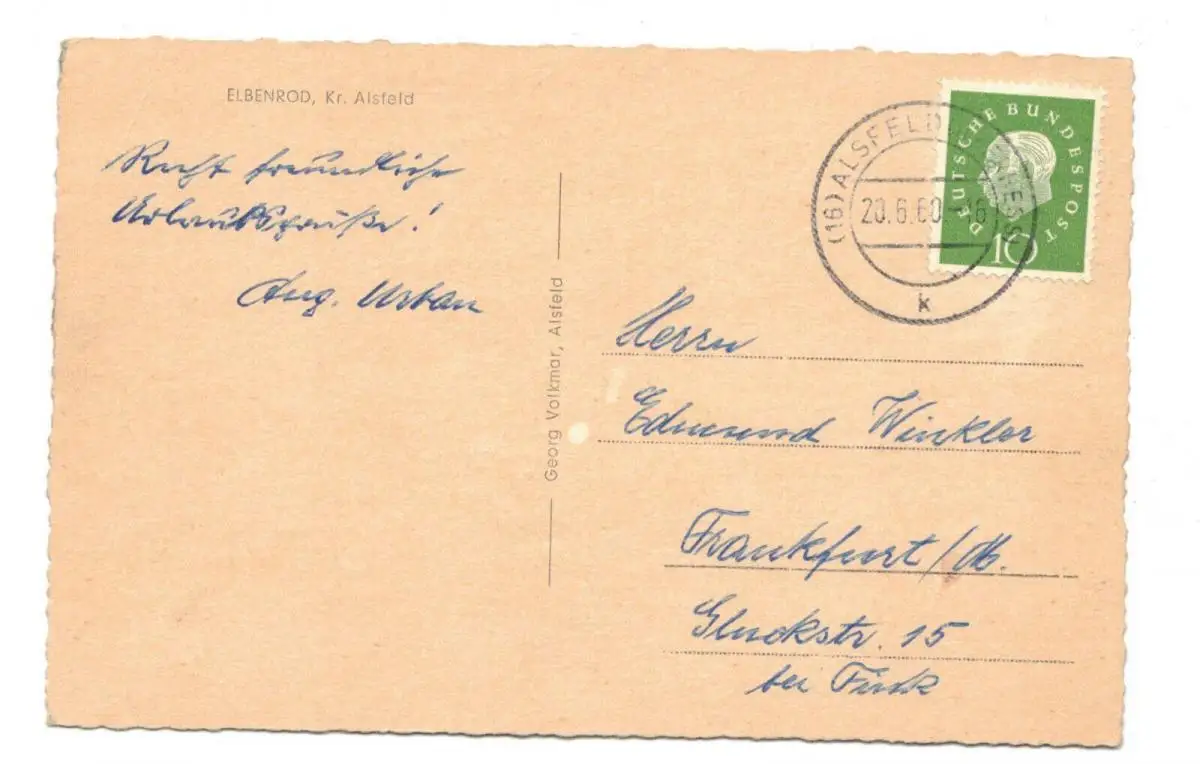 ELBENROD, Kr. Alsfeld
Recht freundliche
Urlaubsgrüße!
Aug. Urban
Georg Volkmar, Alsfeld
DEUTSCHE BUNDESPOST
10
(16) ALSFELD
20.6.60.-16
k
Herrn
Edmund Winkler
Frankfurt/M.
Gluckstr. 15
bei Fink